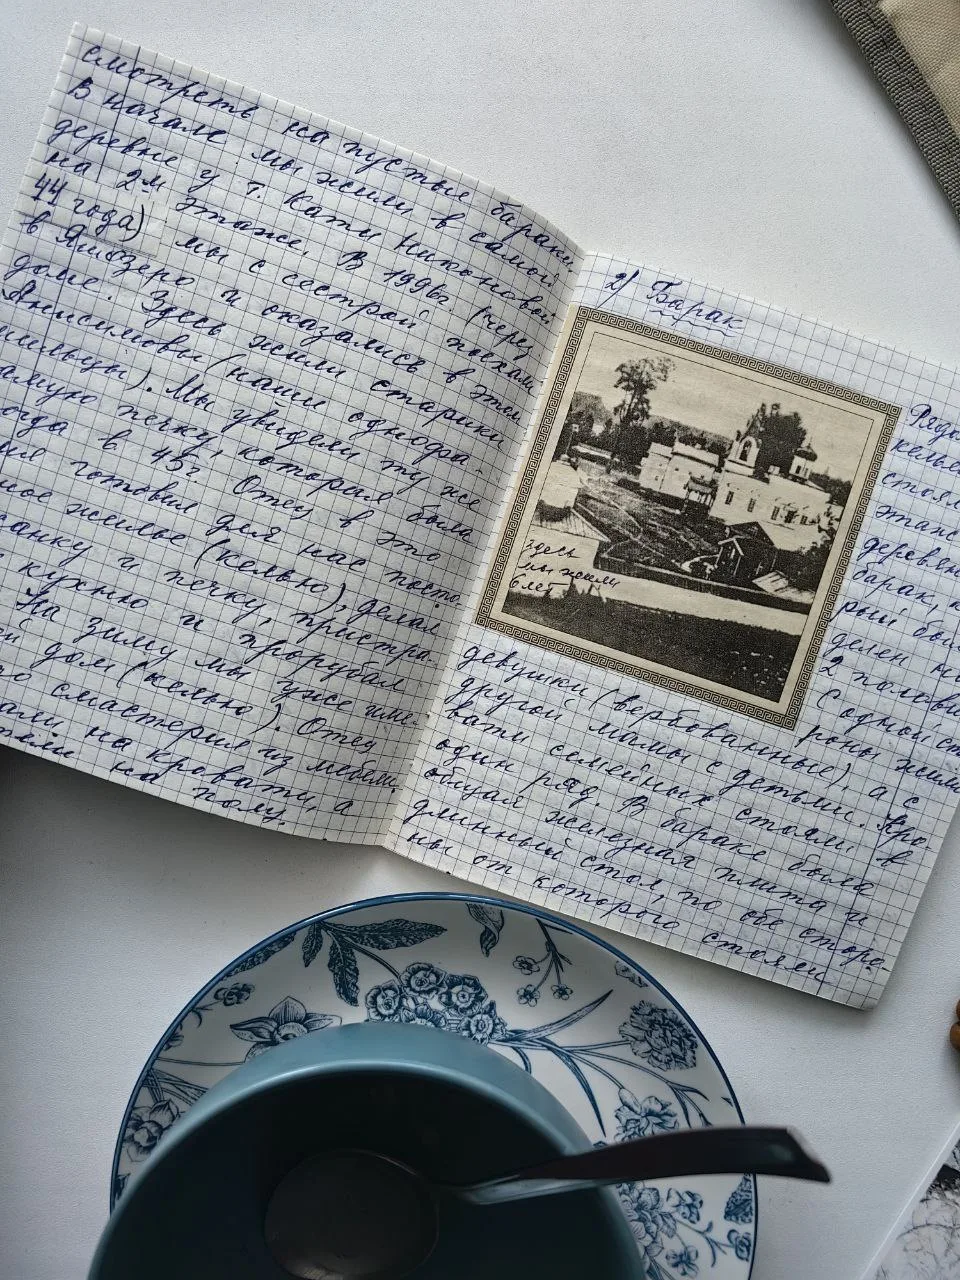 смотреть на пустые бараки
В начале мы жили в самой
деревне у т. Кати Никоновой
на 2м этаже. В 1996г. (через
44 года) мы с сестрой поехали
в Ямозеро и оказались в этом
доме. Здесь жили старики
Анисимовы (наши однора-
мильцы). Мы увидели ту же
самую печку, которая была
тогда в 45г. Отец в это
готовил для нас посто-
жилье (келью), делал
и печку, пристра-
кухню и прорубал
На зиму мы уже име-
дом (келью). Отец
смастерил из мебели
на кровати, а
на полу.
2) Барак
здесь
мы жили
6 лет
Рядо
кельей
стоял
этаж
деревян
барак, к
рый был
делен на
2 половин
С одной ст
роны жили
девушки (вербованные), а с
другой мамы с детьми. Кро
вати семейных стояли в
один ряд. В бараке была
общая железная плита и
длинный стол, по обе сторо-
ны от которого стояли